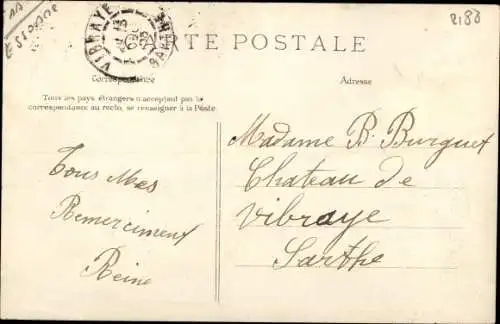 ESSONNE
2188
VIBRAYE
SARTHE
CARTE POSTALE
Correspondance
Adresse
Tous les pays étrangers n'acceptant pas la
correspondance au recto, se renseigner à la Poste
Tous Mes
Remerciment
Reine
Madame B. Burguet
Chateau de
Vibraye
Sarthe